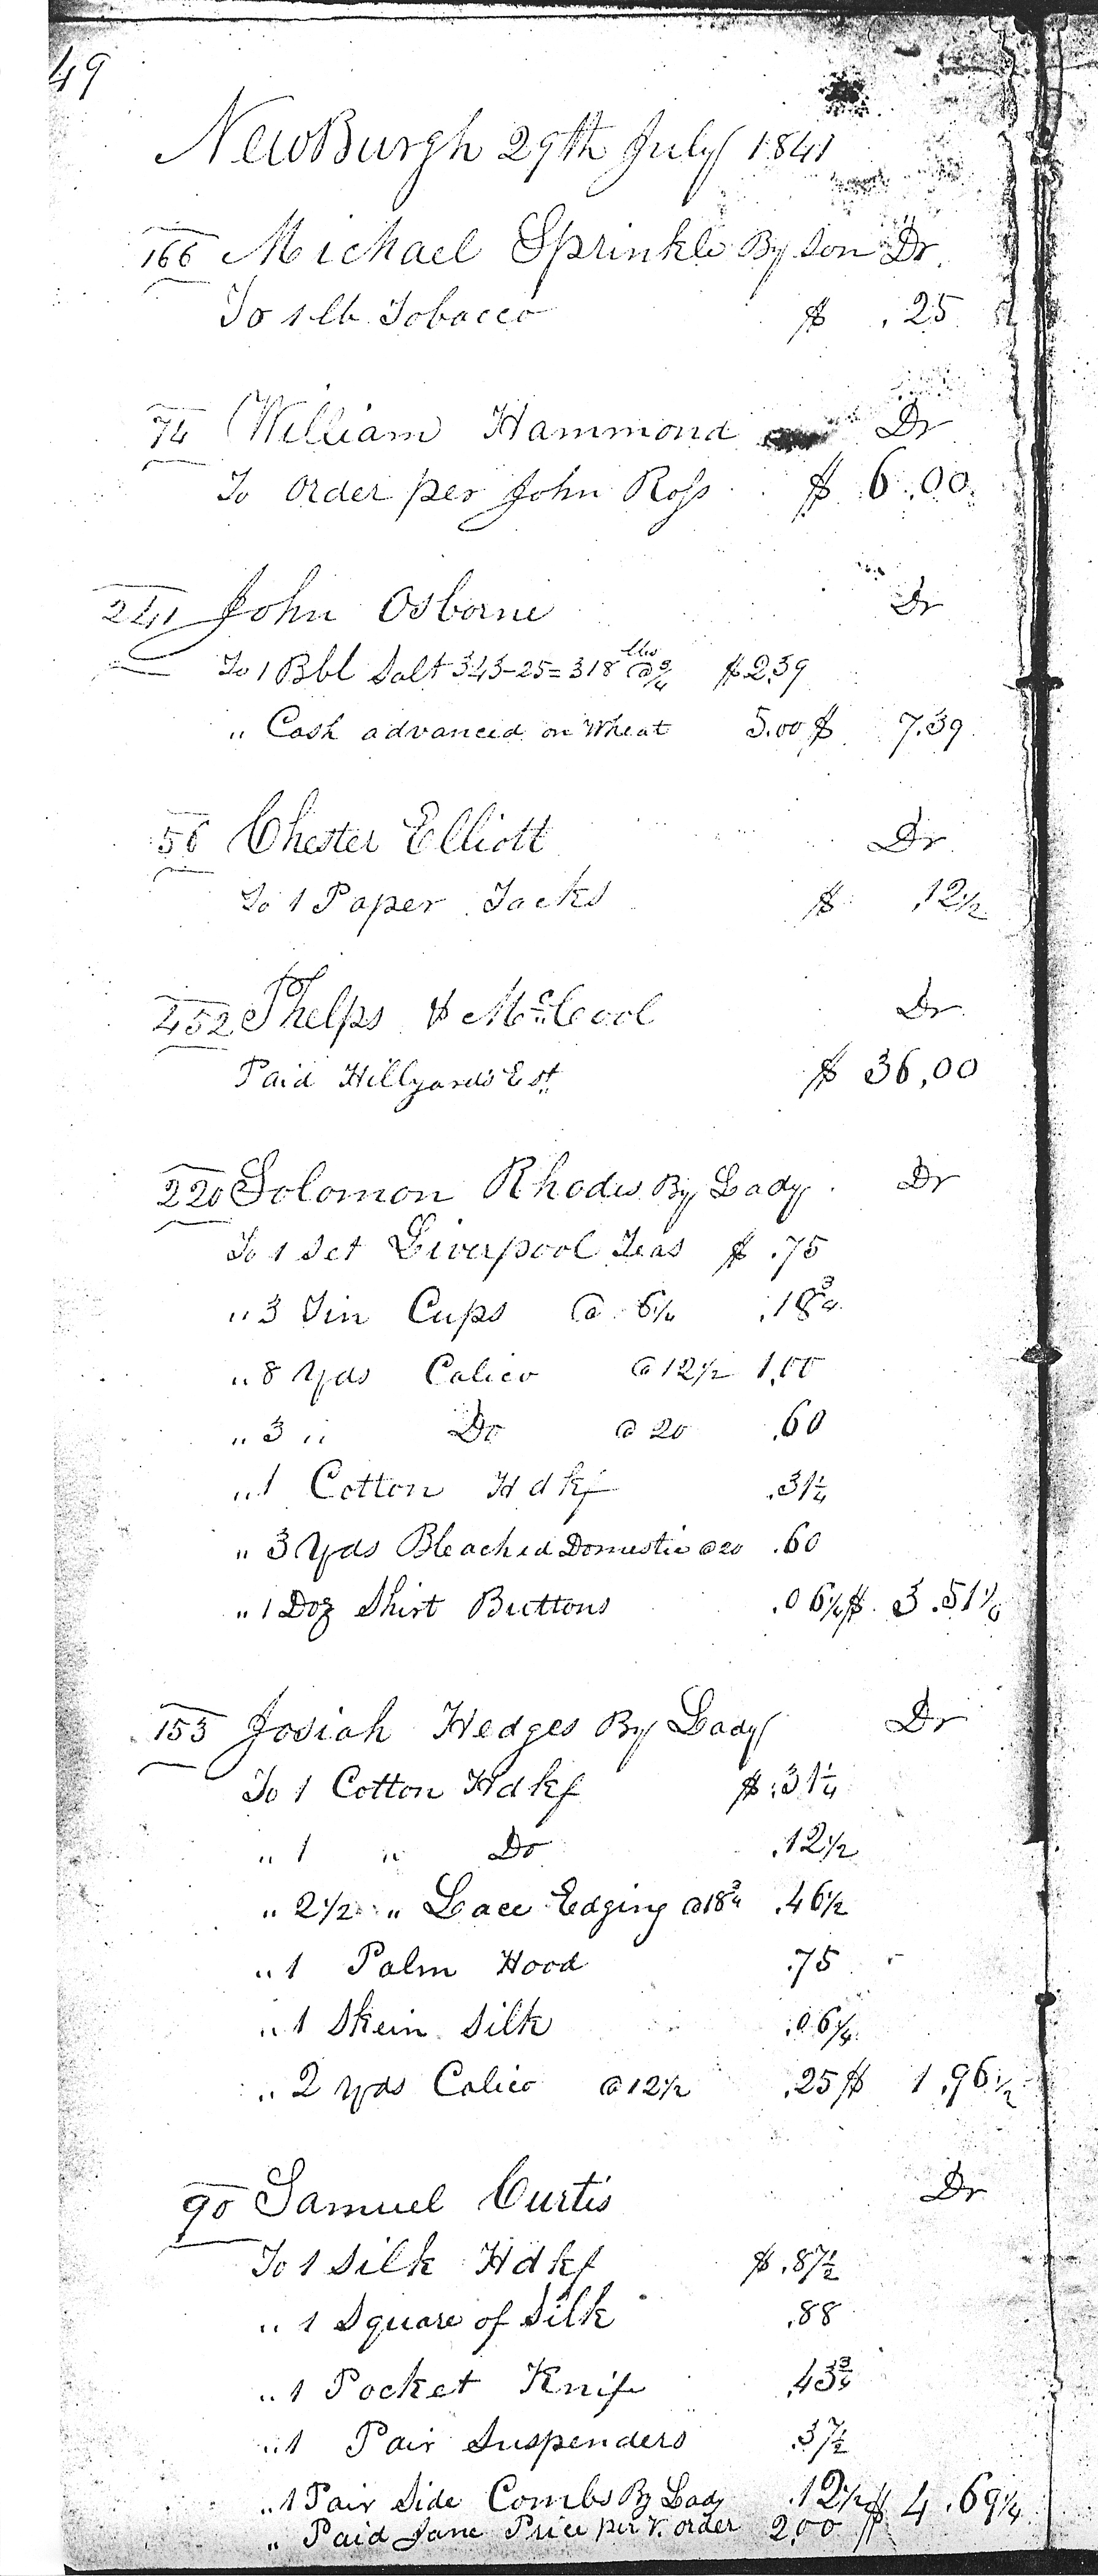 49
NewBurgh 29th July 1841
166 Michael Sprinkle By Son Dr
To 1 lb Tobacco $ .25
74 William Hammond Dr
To Order per John Ross $ 6.00
241 John Osborne Dr
To 1 Bbl Salt 343-25=318 lbs @ 3/4 $2.39
" Cash advanced on Wheat 5.00 $ 7.39
56 Chester Elliott Dr
To 1 Paper Tacks $ .12 1/2
452 Phelps & McCool Dr
Paid Hillyards Est. $ 36,00
220 Solomon Rhodes By Lady Dr
To 1 Set Liverpool Teas $ .75
" 3 Tin Cups @ 6 1/4 .18 3/4
" 8 Yds Calico @ 12 1/2 1.00
" 3 " Do @ 20 .60
" 1 Cotton Hdkf .31 1/4
" 3 Yds Bleached Domestic @ 20 .60
" 1 Doz Shirt Buttons .06 1/4 $ 3.51 1/4
153 Josiah Hedges By Lady Dr
To 1 Cotton Hdkf $ .31 1/4
" 1 " Do .12 1/2
" 2 1/2 " Lace Edging @ 18 3/4 .46 1/2
" 1 Palm Hood .75
" 1 Skein Silk .06 1/4
" 2 yds Calico @ 12 1/2 .25 $ 1.96 1/2
90 Samuel Curtis Dr
To 1 Silk Hdkf $ .87 1/2
" 1 Square of Silk .88
" 1 Pocket Knife .43 3/4
" 1 Pair Suspenders .37 1/2
" 1 Pair Side Combs By Lady .12 1/2 $ 4.69 1/4
" Paid Jane Price per V. order 2.00